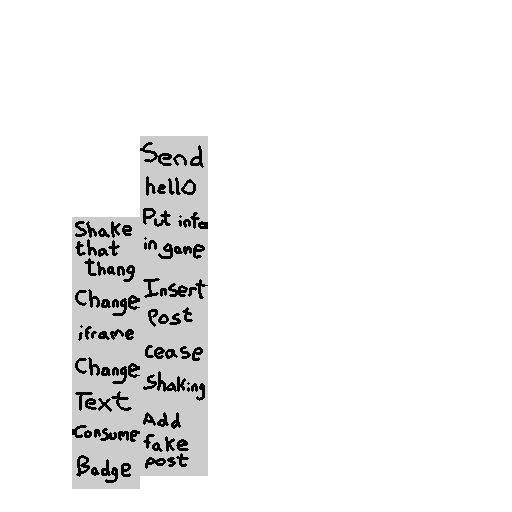 Shake
that
thang
Change
iframe
Change
Text
Consume
Badge
Send
hello
Put info
in game
Insert
Post
cease
shaking
Add
fake
post